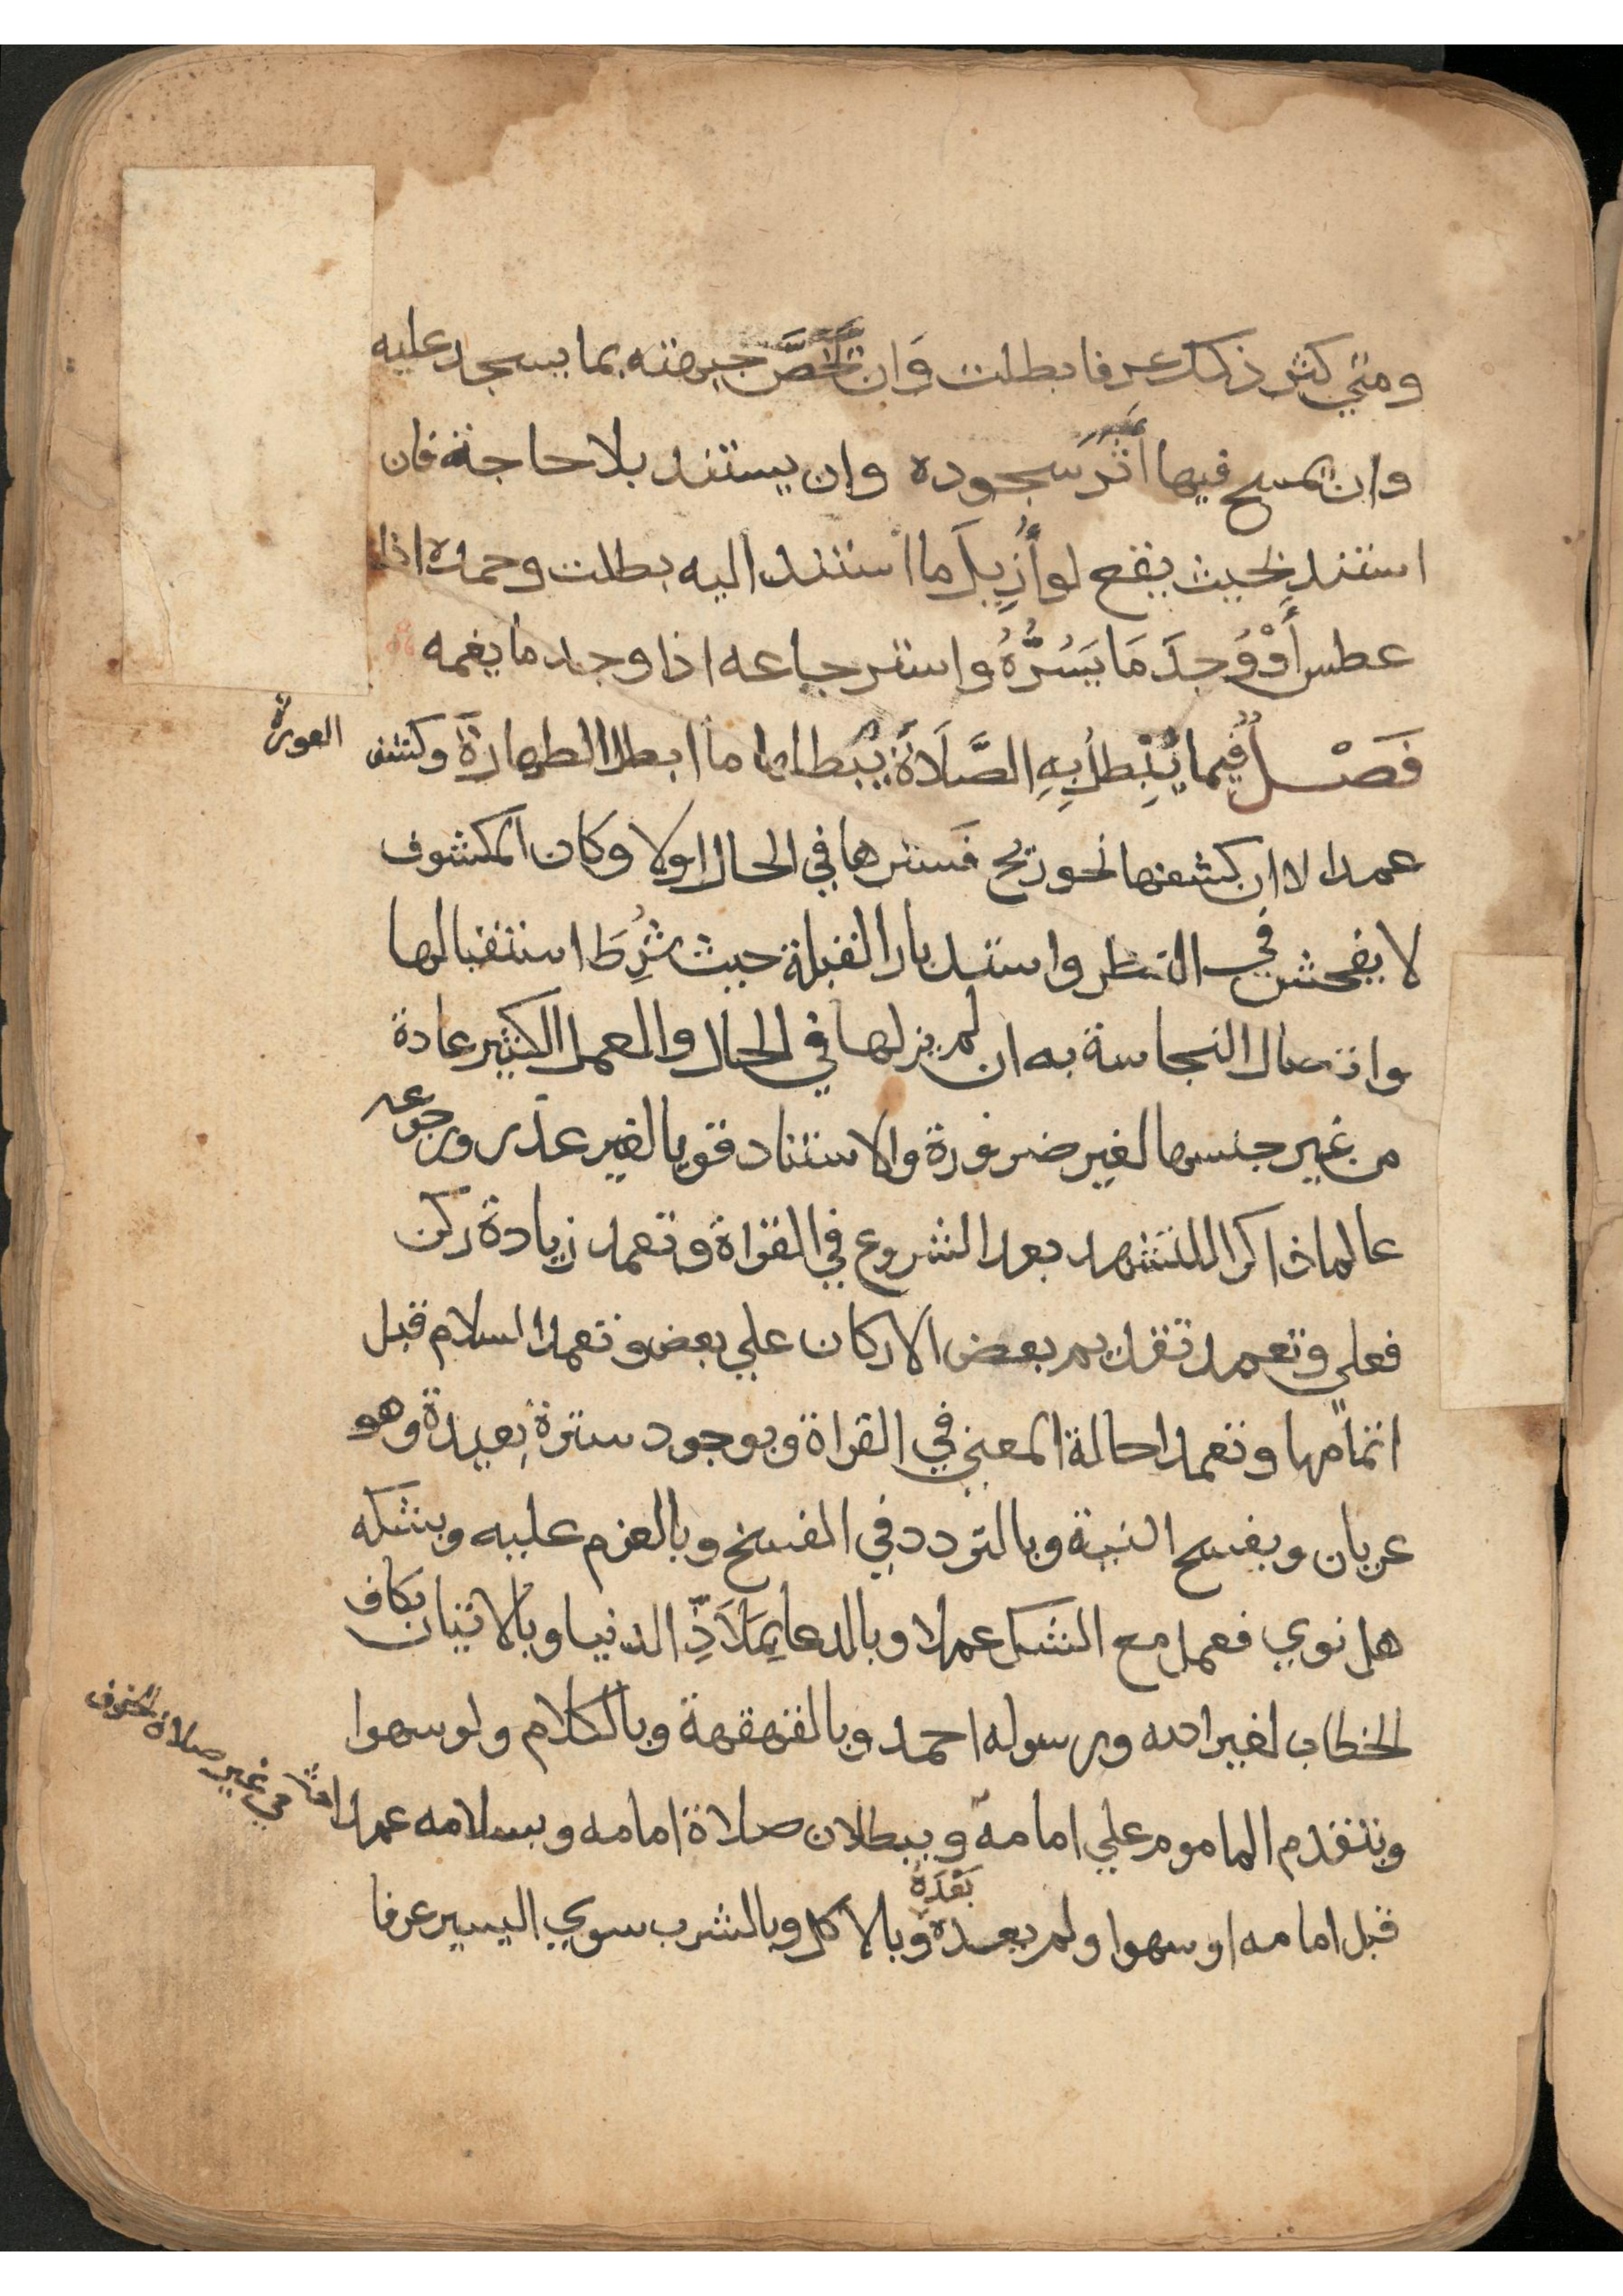 ومتي كثر ذلك عرفا بطلت وَان تُخَصَّ جبهته بما يسجد عليه
وان يمسح فيها أثَرَ سجوده وان يستند بلا حاجة فان
استند بحيث يقع لو أُزِيلَ ما استند اليه بطلت وحمده اذا
عطس أَوْ وَجَدَ مَا يَسُرُّهُ واسترجاعه اذا وجد ما يغمه
فَصْل فيما يُبْطلُ بِهِ الصَّلَاة يبطلها ما ابطل الطهارة وكشف العورة
عمدا لا ان كشفها نحو ريح فَسترها في الحال اولا وكان المكشوف
لا يفحش في النظر واستدبار القبلة حيث شُرِطَ استقبالها
واتصال النجاسة به ان لم يزلها في الحال والعمل الكثير عادة
من غير جنسها لغير ضرورة والاستناد قويا لغير عذر ورجوعه
عالما ذاكرا للتشهد بعد الشروع في القراة وتعمد زيادة ركن
فعلي وتعمد تقديم بعض الاركان علي بعض وتعمد السلام قبل
اتمامها وتعمد احالة المعني في القراة وبوجود سترة بعيدة وهو
عريان وبفسخ النية وبالتردد في الفسخ وبالعزم عليه وبشكه
هل نوي فعمل مع الشك عملا وبالدعا بِمَلَاذِّ الدنيا وبالاتيان بكاف
الخطاب لغير الله ورسوله احمد وبالقهقهة وبالكلام ولو سهوا
وبتقدم الماموم علي امامه وببطلان صلاة امامه وبسلامه عمدا في غير صلاة الخوف
قبل امامه او سهوا ولم يعده بَعْدَهُ وبالاكل وبالشرب سوي اليسير عرفا